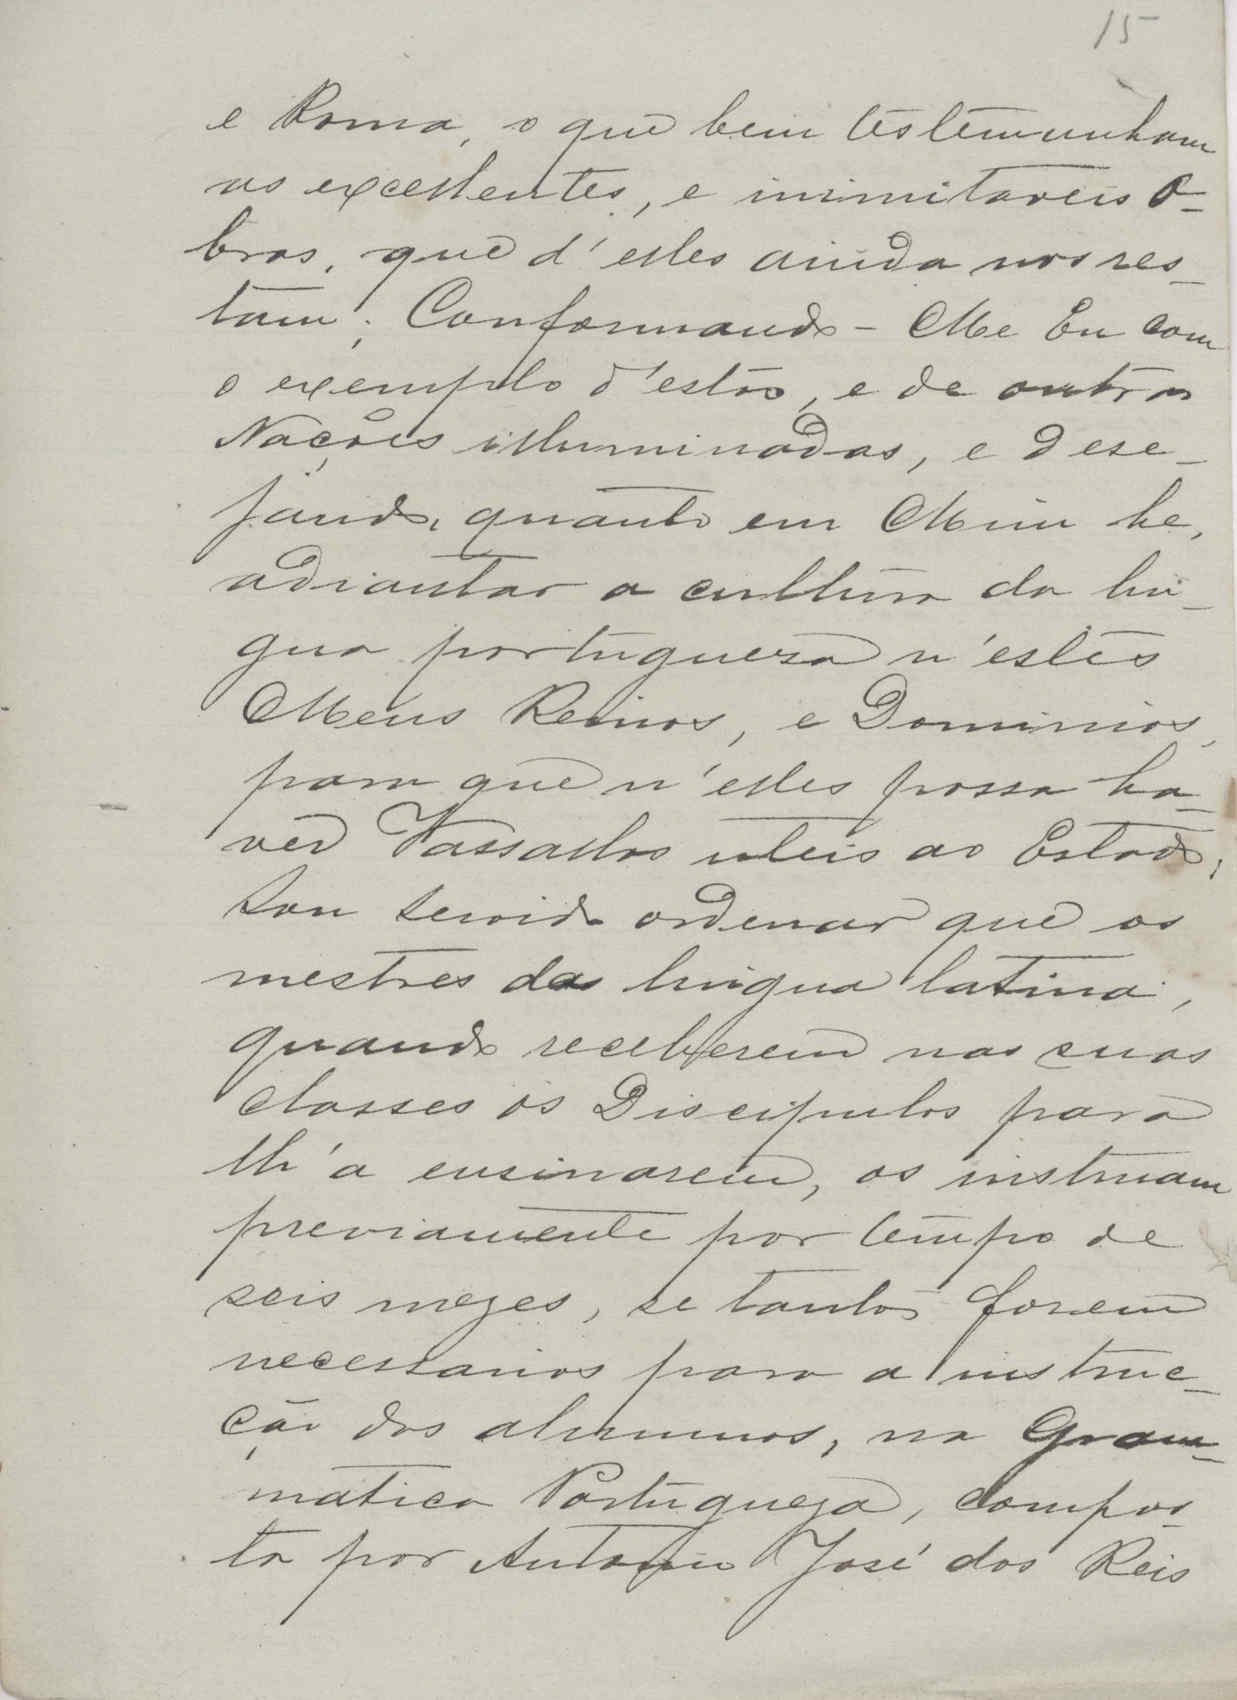 15
e Roma, o que bem testemunham
as excellentes, e inimitaveis O-
bras, que d'elles ainda nos res-
tam; Conformando-Me Eu com
o exemplo d'estas, e de outras
Nações illuminadas, e dese-
jando, quanto em Mim he,
adiantar a cultura da lin-
gua portugueza n'estes
Meus Reinos, e Dominios,
para que n'elles possa ha-
ver Vassallos uteis ao Estado,
Sou servido ordenar que os
mestres da lingua latina,
quando receberem nas suas
classes os Discipulos para
lh'a ensinarem, os instruam
previamente por tempo de
seis mezes, se tantos forem
necessarios para a instruc-
ção dos alumnos, na Gram-
matica Portugueza, compos-
ta por Antonio José dos Reis